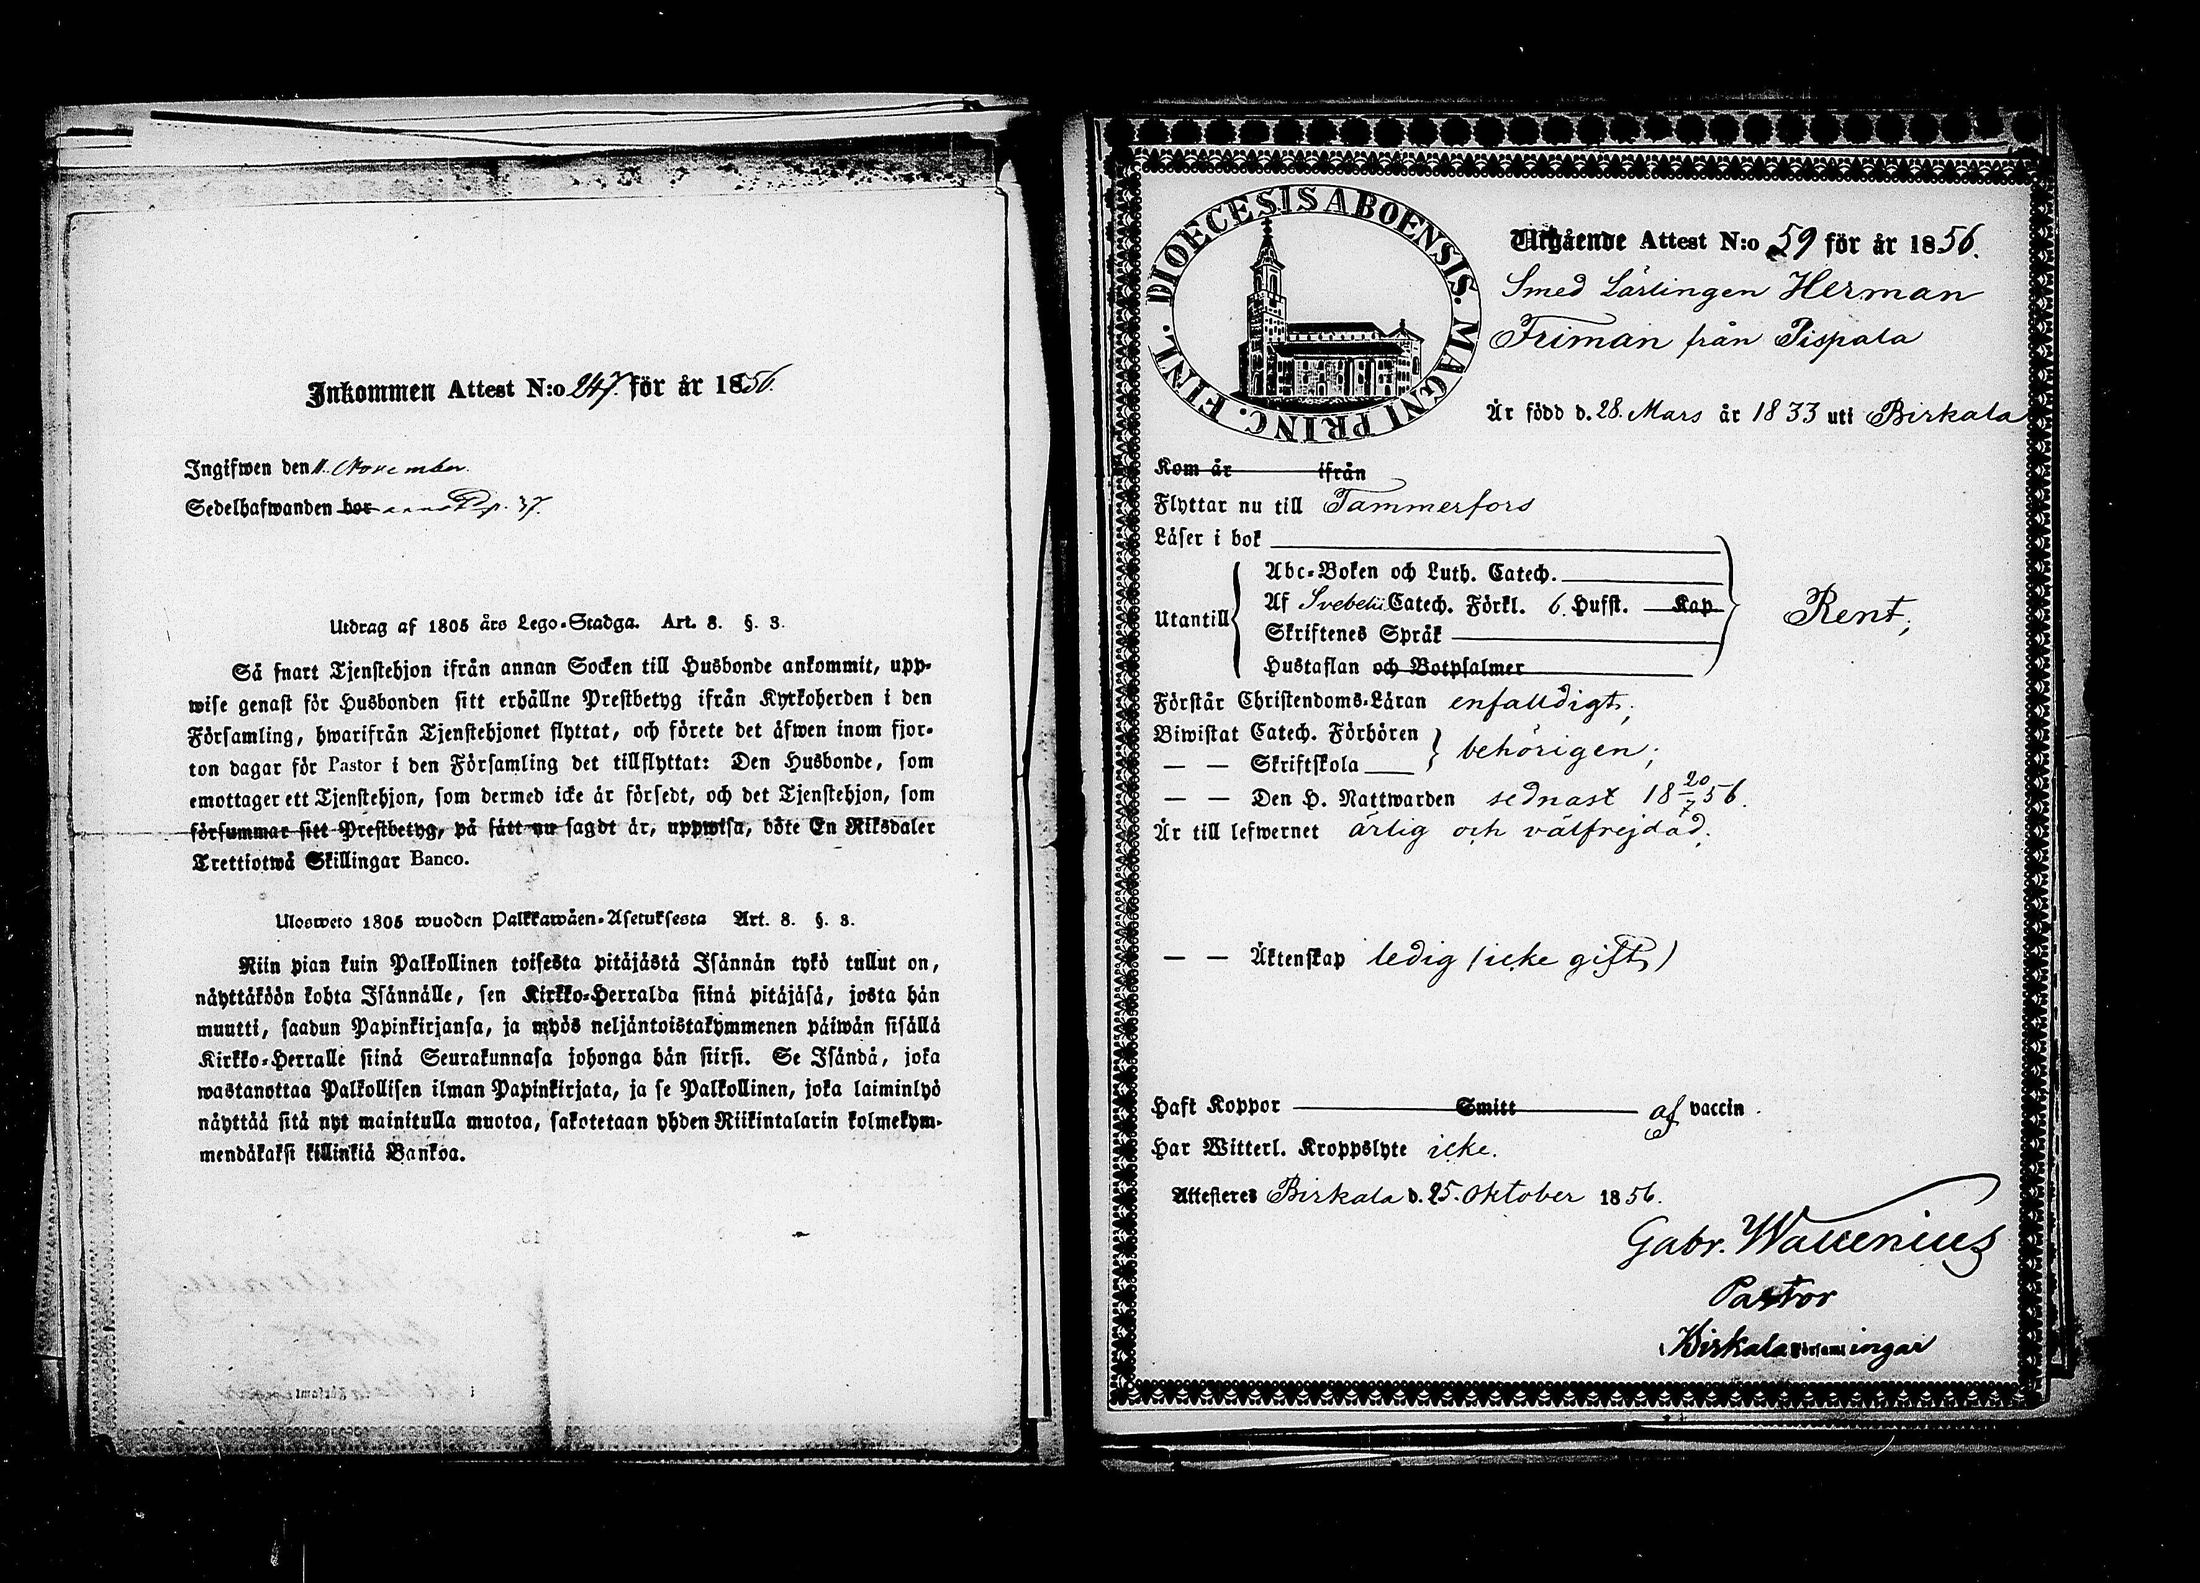 Inkommen Attest N:o 247. för år 1856.
Ingifwen den 11. November.
Sedelhafwanden bor p. 37.
Utdrag af 1805 års Lego-Stadga. Art. 8. §. 3.
Så snart Tjenstehjon ifrån annan Socken till Husbonde ankommit, upp-
wise genast för Husbonden sitt erhållne Prestbetyg ifrån Kyrkoherden i den
Församling, hwarifrån Tjenstehjonet flyttat, och förete det äfwen inom fjor-
ton dagar för Pastor i den Församling det tillflyttat: Den Husbonde, som
emottager ett Tjenstehjon, som dermed icke är försedt, och det Tjenstehjon, som
försummar sitt Prestbetyg, på sätt nu sagdt är, uppwisa, böte En Riksdaler
Trettiotwå Skillingar Banco.
Ulosweto 1805 wuoden Palkkawäen-Asetuksesta Art. 8. §. 3.
Niin pian kuin Palkollinen toisesta pitäjästä Isännän tykö tullut on,
näyttäköön kohta Isännälle, sen Kirkko-Herralda siinä pitäjäsä, josta hän
muutti, saadun Papinkirjansa, ja myös neljäntoistakymmenen päiwän sisällä
Kirkko-Herralle siinä Seurakunnasa johonga hän siirsi. Se Isändä, joka
wastanottaa Palkollisen ilman Papinkirjata, ja se Palkollinen, joka laiminlyö
näyttää sitä nyt mainitulla muotoa, sakotetaan yhden Riikintalarin kolmekym-
mendäkaksi killinkiä Bankoa.
DIOECESIS ABOENSIS. MAGNI PRINC. FINL.
Utgående Attest N:o 59 för år 1856.
Smed Lärlingen Herman
Friman från Pispala
Är född d. 28. Mars år 1833 uti Birkala
Kom år ifrån
Flyttar nu till Tammerfors
Läser i bok
Abc-Boken och Luth. Catech.
Utantill Af Svebelii Catech. Förkl. 6. Hufst. Kap
Skriftenes Språk
Hustaflan och Botpsalmer
Rent,
Förstår Christendoms-Läran enfalldigt,
Biwistat Catech. Förhören
— — Skriftskola behörigen;
— — Den H. Nattwarden sednast 18 20/7 56.
Är till lefwernet ärlig och välfrejdad.
— — Äktenskap ledig (icke gift)
Haft Koppor Smitt af vaccin.
Har Witterl. Kroppslyte icke.
Attesteres Birkala d. 25. Oktober 1856.
Gabr. Wallenius
Pastor
i Birkala Församlingar